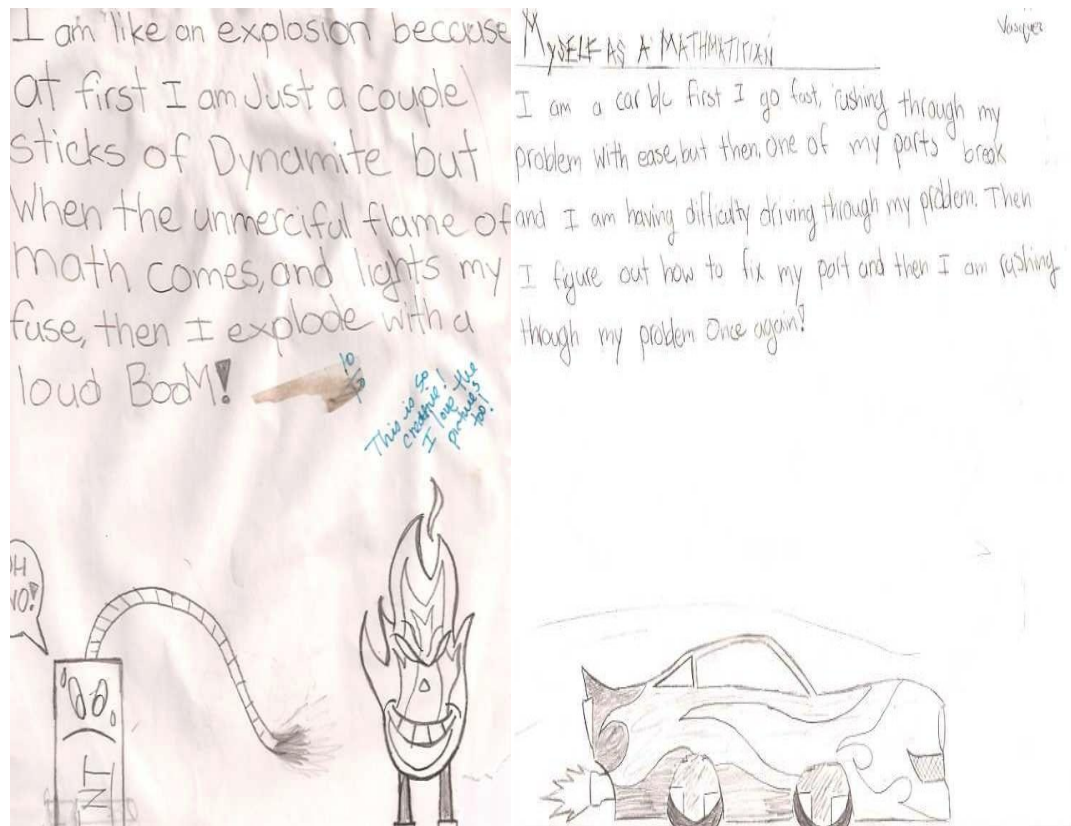 I am like an explosion because
at first I am Just a couple
sticks of Dynamite but
when the unmerciful flame of
math comes, and lights my
fuse, then I explode with a
loud BooM!
10
10
This is so
creative!
I love the
pictures
too!
OH
NO!
NT
MYSELF AS A MATHMATITIAN
Vasquez
I am a car b/c first I go fast, rushing through my
problem with ease, but then, one of my parts break
and I am having difficulty driving through my problem. Then
I figure out how to fix my part and then I am rushing
through my problem Once again!